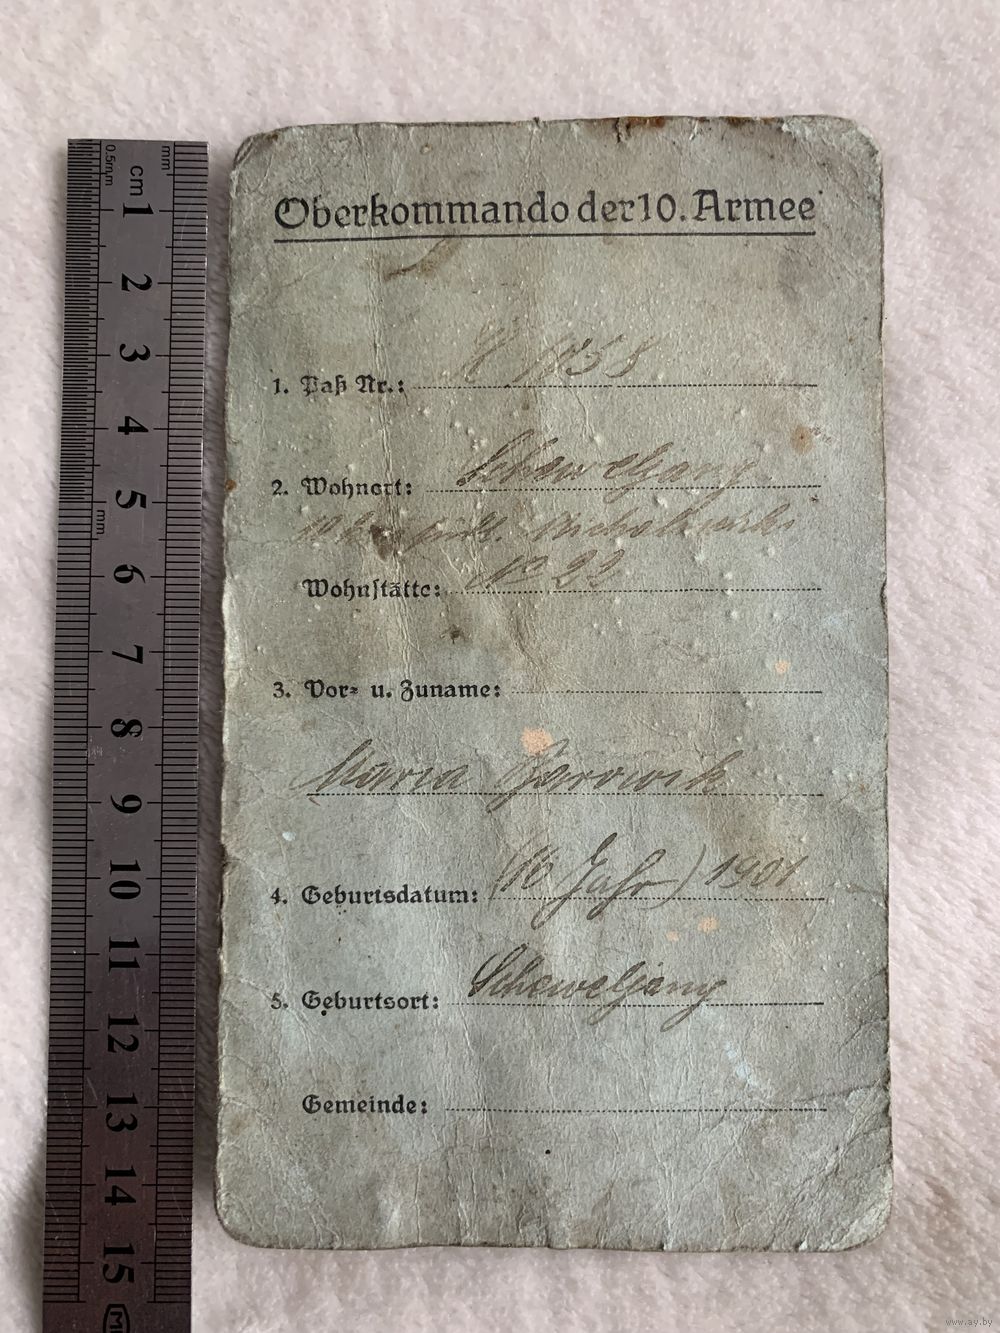 Oberkommando der 10. Armee
1. Paß Nr.:
2. Wohnort: Scheweljany
Wohnstätte: No 22
3. Vor- u. Zuname:
Maria
4. Geburtsdatum: (16 Jahr) 1901
5. Geburtsort: Scheweljany
Gemeinde:
mm
0.5mm
cm
1
2
3
4
5
mm
6
7
8
9
10
11
12
13
14
15
www.ay.by